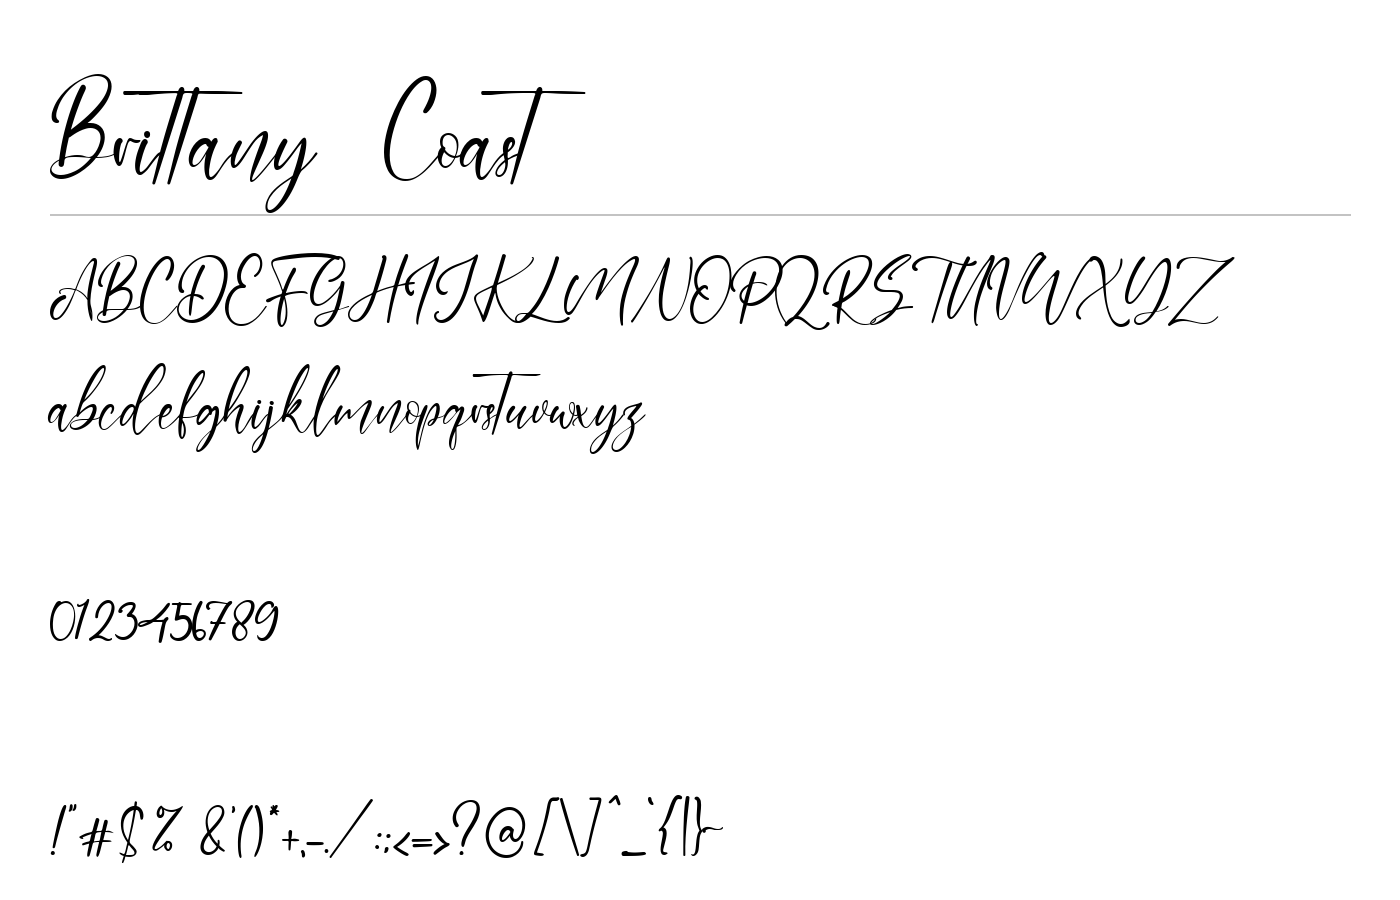 Brittany Coast
ABCDEFGHIJKLMNOPQRSTUVWXYZ
abcdefghijklmnopqrstuvwxyz
0123456789
!"#$% &'()*+,-./ :;<=>?@[\]^_`{|}~